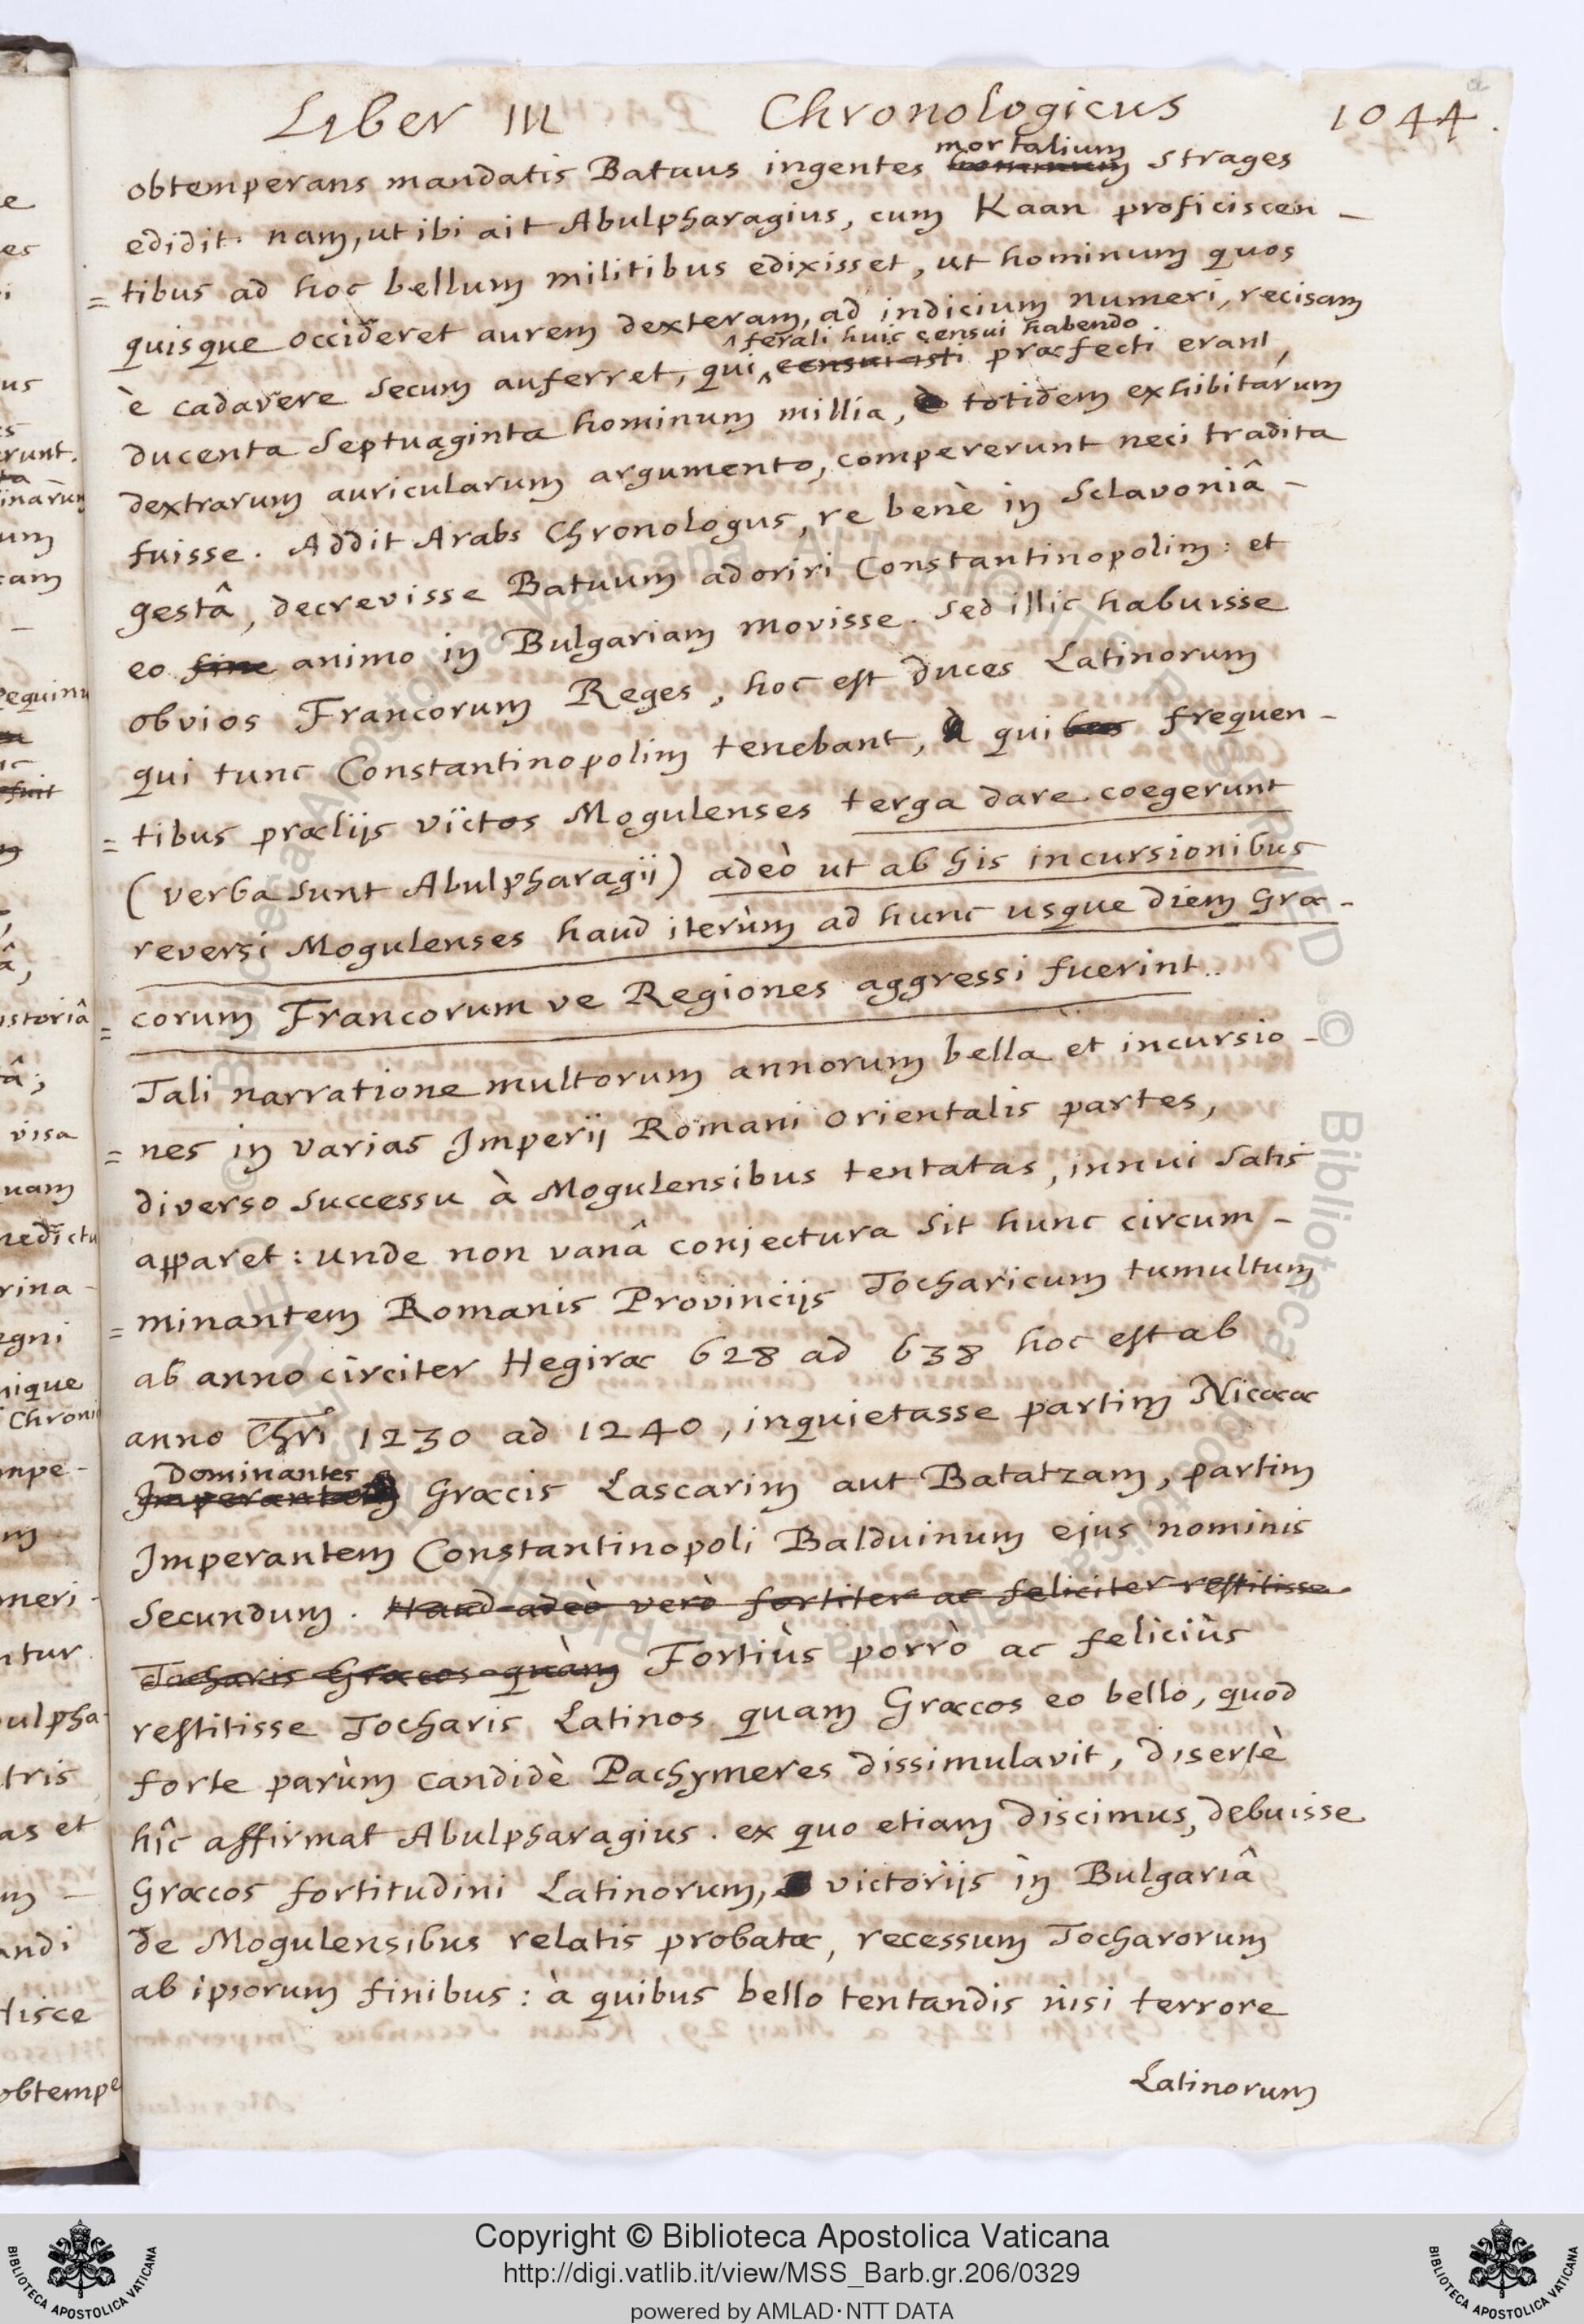 Liber III Chronologicus 1044.
mortalium
obtemperans mandatis Batuus ingentes hominum strages
edidit. nam, ut ibi ait Abulpharagius, cum Kaan proficiscen-
=tibus ad hoc bellum militibus edixisset, ut hominum quos
quisque occideret aurem dexteram, ad indicium numeri, recisam
ferali huic censui habendo
è cadavere secum auferret, qui censui isti præfecti erant,
ducenta septuaginta hominum millia, totidem exhibitarum
dextrarum auricularum argumento, compererunt neci tradita
fuisse. Addit Arabs Chronologus, re benè in Sclavoniâ-
gestâ, decrevisse Batuum adoriri Constantinopolim: et
eo fine animo in Bulgariam movisse. Sed illic habuisse
obvios Francorum Reges, hoc est duces Latinorum
qui tunc Constantinopolim tenebant, à quibus frequen-
=tibus præliis victos Mogulenses terga dare coegerunt
(verba sunt Abulpharagij) adeò ut ab his incursionibus
reversi Mogulenses haud iterùm ad hunc usque diem Græ-
=corum Francorum ve Regiones aggressi fuerint..
Tali narratione multorum annorum bella et incursio-
=nes in varias Imperij Romani Orientalis partes,
diverso successu à Mogulensibus tentatas, innui satis
apparet: unde non vanâ conjectura sit hunc circum-
=minantem Romanis Provincijs Tocharicum tumultum
ab anno circiter Hegiræ 628 ad 638 hoc est ab
anno Chri 1230 ad 1240, inquietasse partim Nicææ
Dominantes
Græcis Lascarim aut Batatzam, partim
Imperantem Constantinopoli Balduinum ejus nominis
Secundum. Haud adeò verò fortiter ac feliciter restitisse
Tocharis Græcos quàm Fortiùs porrò ac feliciùs
restitisse Tocharis Latinos quam Græcos eo bello, quod
forte parùm candidè Pachymeres dissimulavit, disertè
hîc affirmat Abulpharagius. ex quo etiam discimus, debuisse
Græcos fortitudini Latinorum, victorijs in Bulgariâ
de Mogulensibus relatis probatæ, recessum Tocharorum
ab ipsorum finibus: à quibus bello tentandis nisi terrore
Latinorum
e
es
i
us
es
erunt.
inarum
um
cam
pequinu
â,
istoriâ
â;
visa
uam
nedictu
rina-
egni
nique
Chroni
mpe-
m
meri-
ntur
ulpha-
tris
as et
m-
andi
tisce
obtempe
© Biblioteca Apostolica Vaticana ALL RIGHTS RESERVED
BIBLIOTECA APOSTOLICA VATICANA
Copyright © Biblioteca Apostolica Vaticana
http://digi.vatlib.it/view/MSS_Barb.gr.206/0329
powered by AMLAD·NTT DATA
BIBLIOTECA APOSTOLICA VATICANA